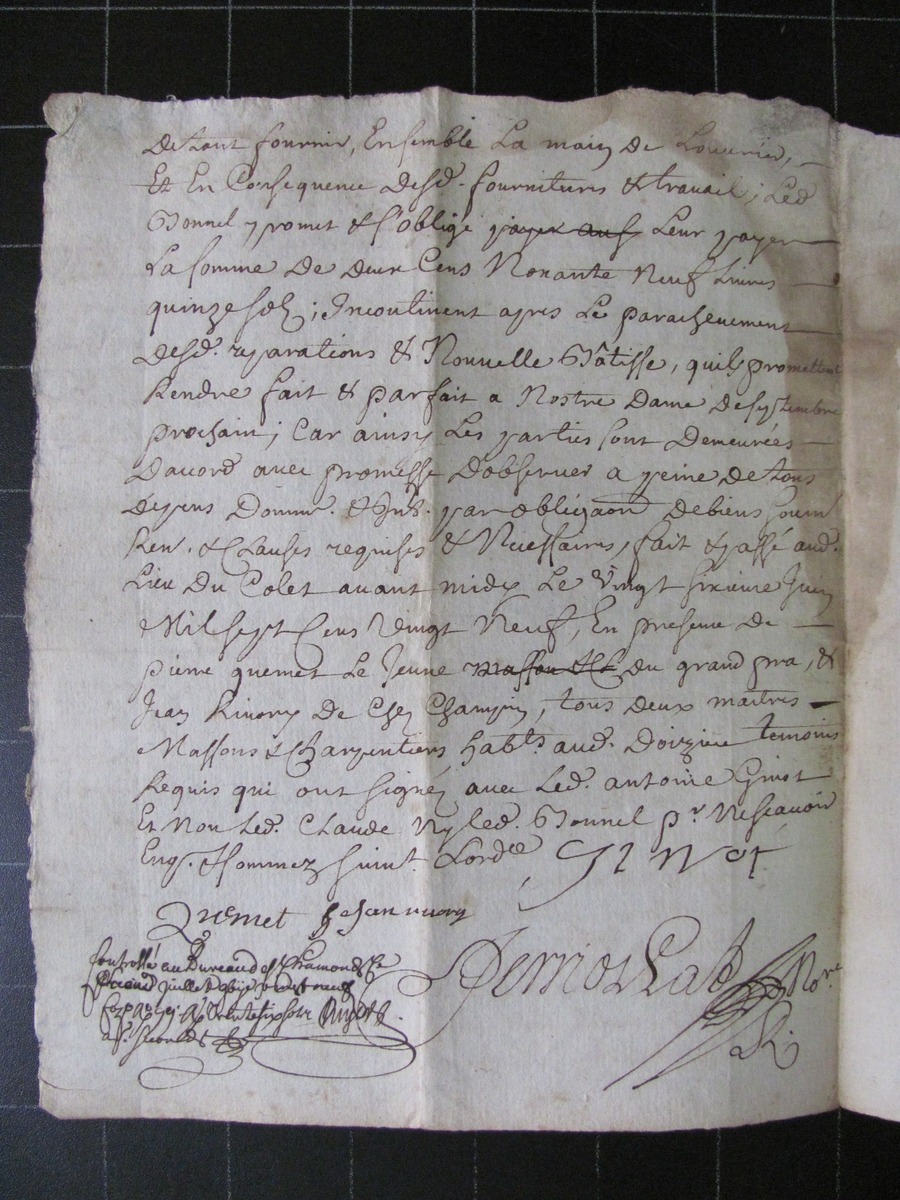 De tout fournir, Ensemble La main De Louvrier,
Et En Consequence Desd. fournitures & travail; Led
Bonnel promet & s'oblige payer Leur payer
La somme De deux Cens Nonante Neuf Livres
quinze solz; Incontinent apres Le parachevement
Desd. reparations & Nouvelle Bâtisse, quils promettent
Rendre fait & parfait a Nostre Dame de septembre
prochain; Car ainsy Les parties sont Demeurées
Dacord avec promesse D'observer a peine de tous
Depens Domm. & Int. par obligaon De biens soum
Ren. & Clauses requises & Necessaires, fait & passé aud.
Lieu Du Colet avant midy Le Vingt sixieme Juin
Mil sept Cens Vingt Neuf, En presence de
pierre quemet Le Jeune masson & C Du grand pra, &
Jean Rivory De Chez Champin, tous deux maitres
Massons & Charpentiers habts. aud. Doizieu temoins
Requis qui ont signéz avec Led. antoine Ginot
Et Non Led. Claude Ny Led. Bonnel pr Ne scavoir
Enq. & sommez suivt. Lordce
Ginot
Quemet Jean rivory
Controllé au Bureau de St Chamond Le
juillet
Nore.
R.